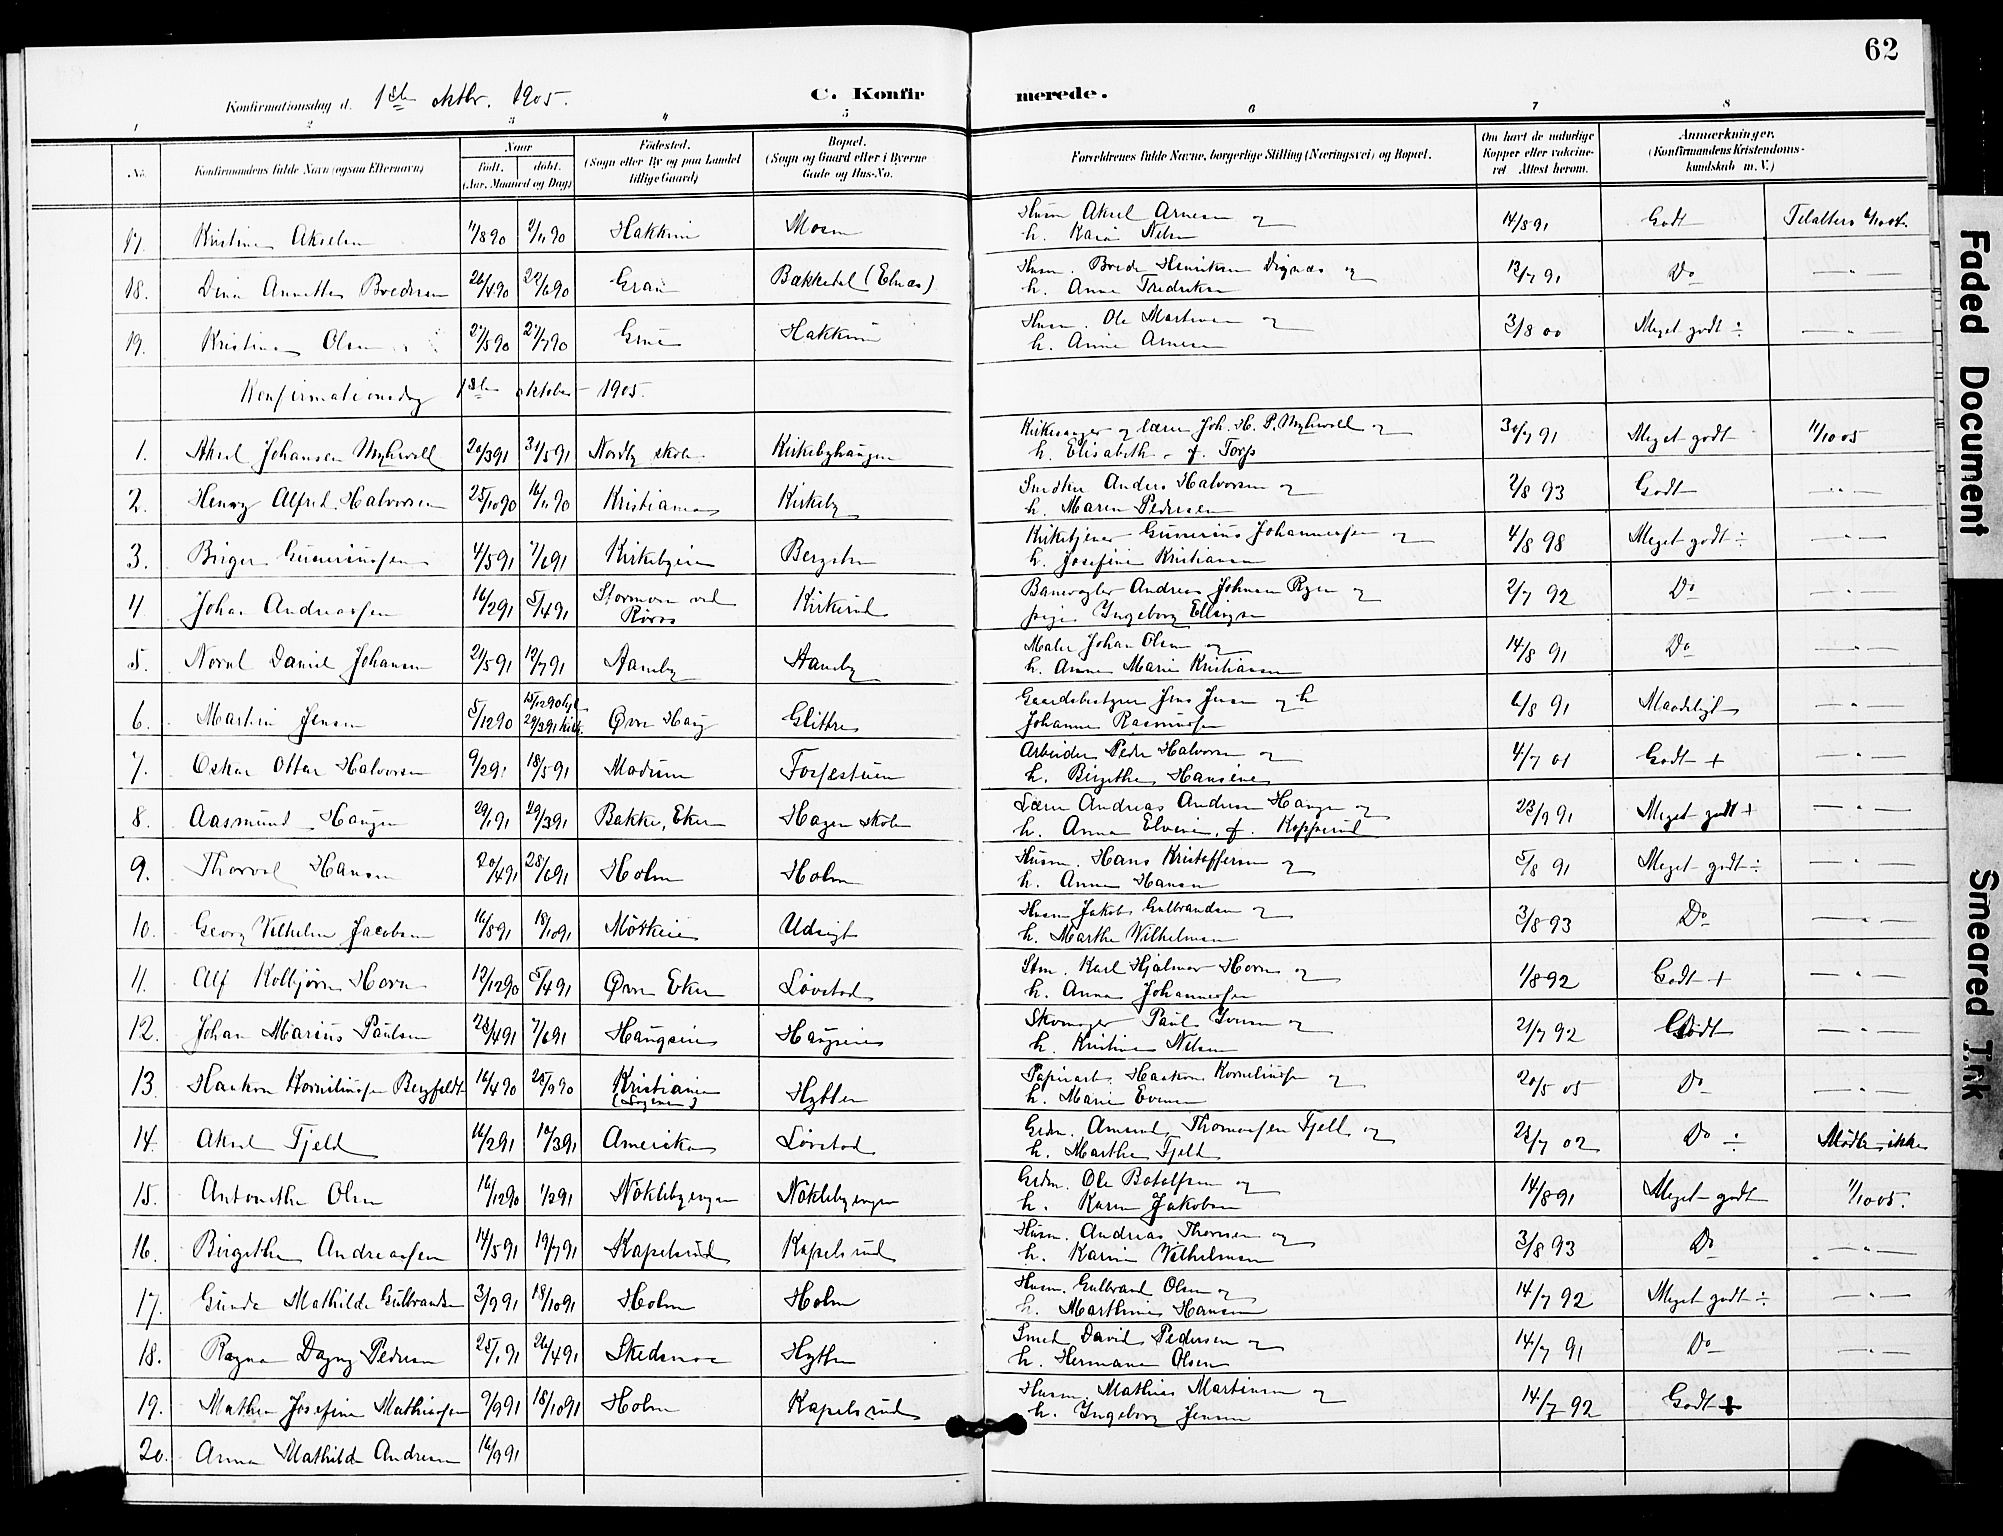 62
Konfirmationsdag d. 1ste oktbr. 1905.
C. Konfirmerede.
1 2 3 4 5 6 7 8
No. Konfirmandens fulde Navn (ogsaa Efternavn) Naar født. døbt. (Aar, Maaned og Dag) Fødested. (Sogn eller By og paa Landet tillige Gaard) Bopæl. (Sogn og Gaard eller i Byerne Gade og Hus-No. Forældrenes fulde Navne, borgerlige Stilling (Næringsvei) og Bopæl. Om havt de naturlige Kopper eller vaccineret Attest herom. Anmærkninger. (Konfirmandens Kristendomskundskab m. V.)
17. Kristine Akselsen 11/8 90 2/11 90 Hakkim Moen Husm Aksel Arnesen og h. Karen Nilsen 14/8 91 Godt
18. Dina Annette Bredesen 26/4 90 22/6 90 Gran Bakketel (Elnæs) Husm. Brede Henriksen Dignæs og h. Anne Fredriksen 12/7 91 Do — " —
19. Kristine Olsen 21/5 90 27/7 90 Hakkim Husm. Ole Martinsen og h. Anne Arnesen 3/8 00 Meget godt ÷ — " —
Konfirmationsdag 1ste oktober 1905.
1. Aksel Johansen Myhrvoll 20/3 91 31/5 91 Nordby skole Kirkebyhaugen Kirkesanger og lærer Joh. H. P. Myhrvoll og h. Elisabeth f. Torp 30/7 91 Meget godt 1/10 05
2. Henry Alfred Halvorsen 25/10 90 16/11 90 Kristiania Kirkeby Anders Halvorsen og h. Maren Pedersen 2/8 93 Godt — " —
3. Birger Gunerinssen 4/5 91 7/6 91 Kirkebyeie Kirketjener Gunerius Johannessen og h. Josefine Kristiansen 4/8 98 Meget godt ÷ — " —
4 Johan Andreassen 16/2 91 5/4 91 Stormoen ved Røros Kirkerud Banevogter Andreas Johnsen Ryen og Ingeborg Ellingsen 2/7 92 Do — " —
5. Norul Daniel Johansen 21/5 91 12/7 91 Aamby Aamby Maler Johan Olsen og h. Anne Marie Kristiansen 14/8 91 Do — " —
6. Martin Jensen 5/12 90 15/12 90 hj.d. 29/3 91 kirk. Øvre Haug Glittre Gaardsbestyrer Jens Jensen og h Johanne Rasmussen 6/8 91 Maadeligt — " —
7. Oskar Ottar Halvorsen 9/2 91 18/5 91 Modum Fossestuen Arbeider Peder Halvorsen og h. Birgithe Hansine 4/7 01 Godt + — " —
8. Aasmund Haugen 29/1 91 29/3 91 Bakke, Eker Hagen skole Lærer Andreas Andersen Haugen og h. Anna Elvine, f. Kopperud 23/9 91 Meget godt + — " —
9. Thorval Hansen 20/4 91 28/6 91 Holm Holm Husm. Hans Kristoffersen og h. Anne Hansen 5/8 91 Meget godt ÷ — " —
10. Georg Vilhelm Jacobsen 16/8 91 18/10 91 Mørkeie Udsigt Husm Jakob Gulbrandsen og h. Marthe Vilhelmsen 3/8 93 Do — " —
11. Alf Kolbjørn Horn 12/12 90 5/4 91 Øvre Eker Løvstad Stm. Karl Hjalmar Horn og h. Anna Johannessen 1/8 92 Godt + — " —
12. Johan Marius Paulsen 23/4 91 7/6 91 Haugseie Haugseie Skomager Paul Iversen og h. Kristine Nilsen 21/7 92 Godt — " —
13 Haakon Korniliussen Bergfeldt 16/4 90 28/9 90 Kristiania Hytten Papirarb. Haakon Korneliussen og h. Marie Evensen 20/5 05 Do — " —
14. Aksel Fjeld 16/2 91 10/3 91 Amerika Løvstad Grdm. Amund Thomassen Fjeld og h. Marthe Fjeld 23/7 02 Do ÷ Mødte ikke
15. Antonethe Olsen 16/12 90 1/2 91 Nøklebyengen Nøklebyengen Grdm. Ole Botolfsen og h. Karen Jakobsen 14/8 91 Meget godt 1/10 05.
16. Birgithe Andreassen 14/5 91 19/7 91 Kapelsrud Kapelsrud Husm. Andreas Thoresen og h. Karine Vilhelmsen 3/8 93 Do — " —
17. Gunda Mathilde Gulbrandsen 3/9 91 18/10 91 Holm Holm Husm. Gulbrand Olsen og h. Marthine Hansen 14/7 92 Meget godt ÷ — " —
18. Ragna Dagny Pedersen 25/1 91 26/4 91 Skedsmo Hytten Smed David Pedersen og h. Hermana Olsen 14/7 91 Do — " —
19. Mathea Josefine Mathiassen 9/9 91 18/10 91 Holm Kapelsrud Husm. Mathias Martinsen og h. Ingeborg Jensen 14/7 92 Godt +
20. Anna Mathilde Andersen 16/9 91
Faded Document
Smeared Ink